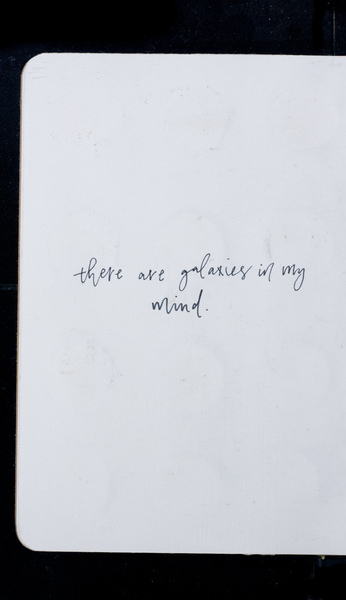 there are galaxies in my
mind.